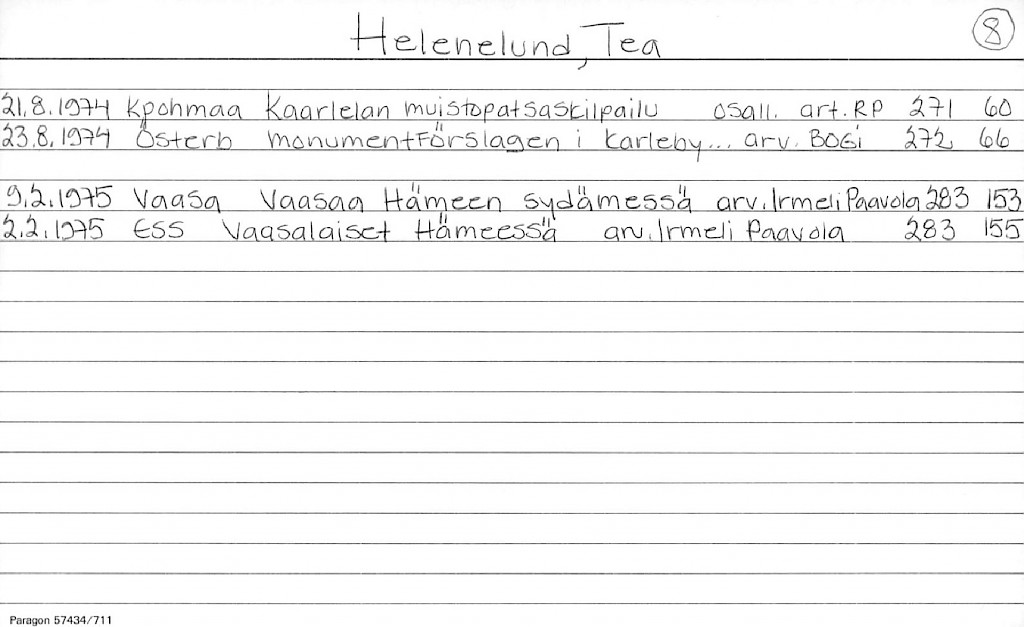 Helenelund, Tea
8
21.8.1974 Kpohmaa Kaarlelan muistopatsaskilpailu osall. art. RP 271 60
23.8.1974 Österb monumentförslagen i Karleby... arv. BOGi 272 66
9.2.1975 Vaasa Vaasaa Hämeen sydämessä arv. Irmeli Paavola 283 153
2.2.1975 ESS Vaasalaiset Hämeessä arv. Irmeli Paavola 283 155
Paragon 57434/711